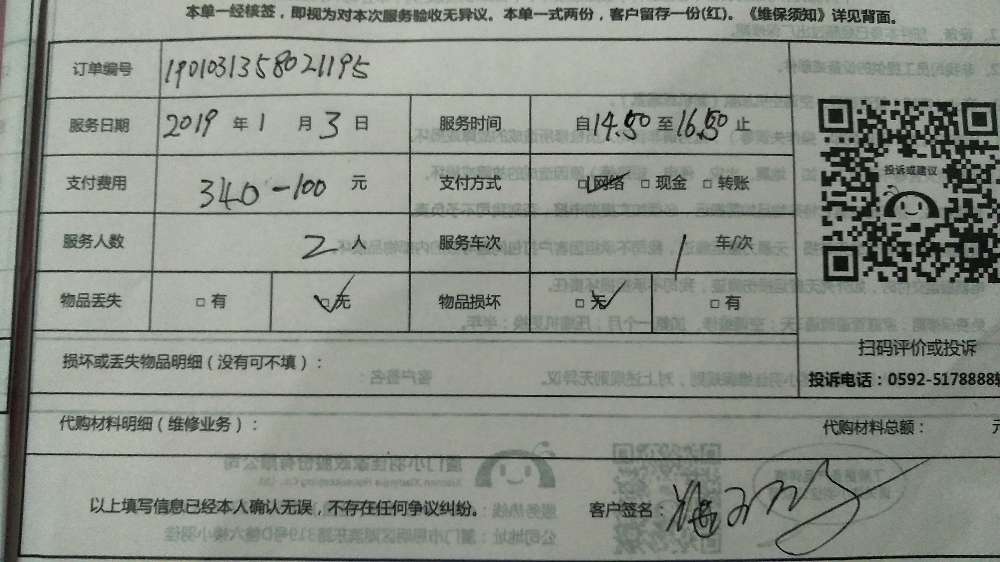 本单一经核签，即视为对本次服务验收无异议。本单一式两份，客户留存一份(红)。《维保须知》详见背面。
订单编号 1901031358021195
服务日期 2019 年 1 月 3 日 服务时间 自 14.50 至 16.50 止
支付费用 340-100 元 支付方式 □网络 □现金 □转账
服务人数 2 人 服务车次 1 车/次
物品丢失 □有 □无 物品损坏 □无 □有
投诉或建议
扫码评价或投诉
投诉电话：0592-5178888转
损坏或丢失物品明细（没有可不填）：
代购材料明细（维修业务）： 代购材料总额： 元
以上填写信息已经本人确认无误，不存在任何争议纠纷。 客户签名：